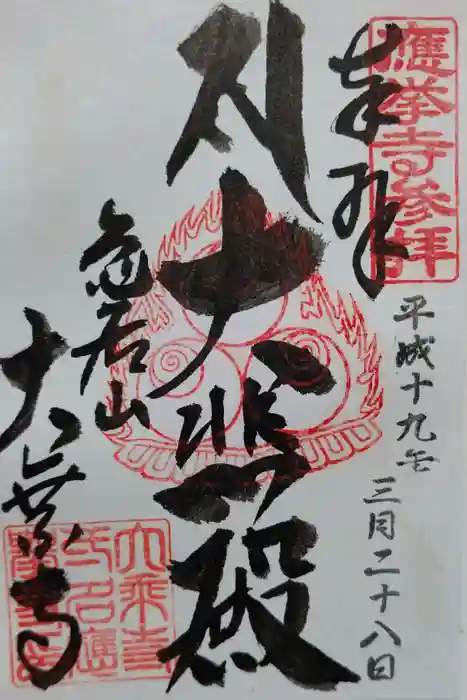 應挙寺参拝
奉拝
平成十九年
三月二十八日
大悲殿
亀居山
大乗寺